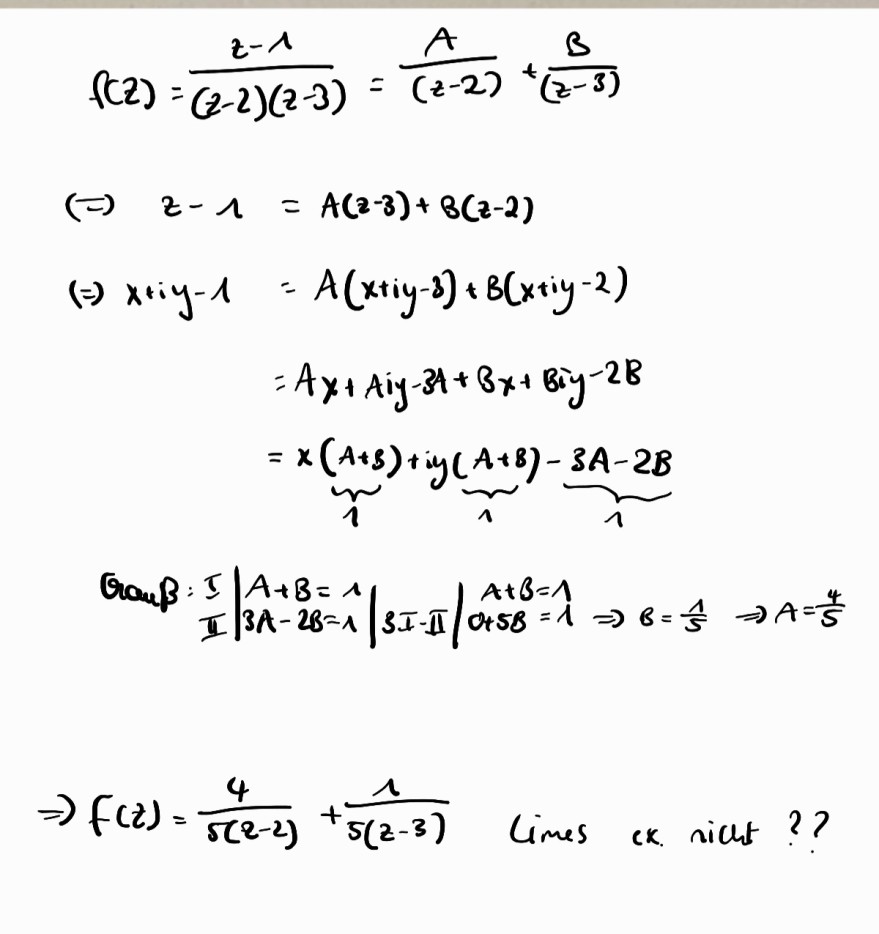 f(z) = z-1 / (z-2)(z-3) = A / (z-2) + B / (z-3)
(=) z - 1 = A(z-3) + B(z-2)
(=) x+iy-1 = A(x+iy-3) + B(x+iy-2)
= Ax + Aiy - 3A + Bx + Biy - 2B
= x(A+B) + iy(A+B) - 3A - 2B
1 1 1
Gauß: I | A+B = 1 | A+B=1
II | 3A - 2B = 1 | 3I-II | 0+5B = 1 => B = 1/5 => A = 4/5
=> f(z) = 4 / 5(z-2) + 1 / 5(z-3) Limes ex. nicht ??